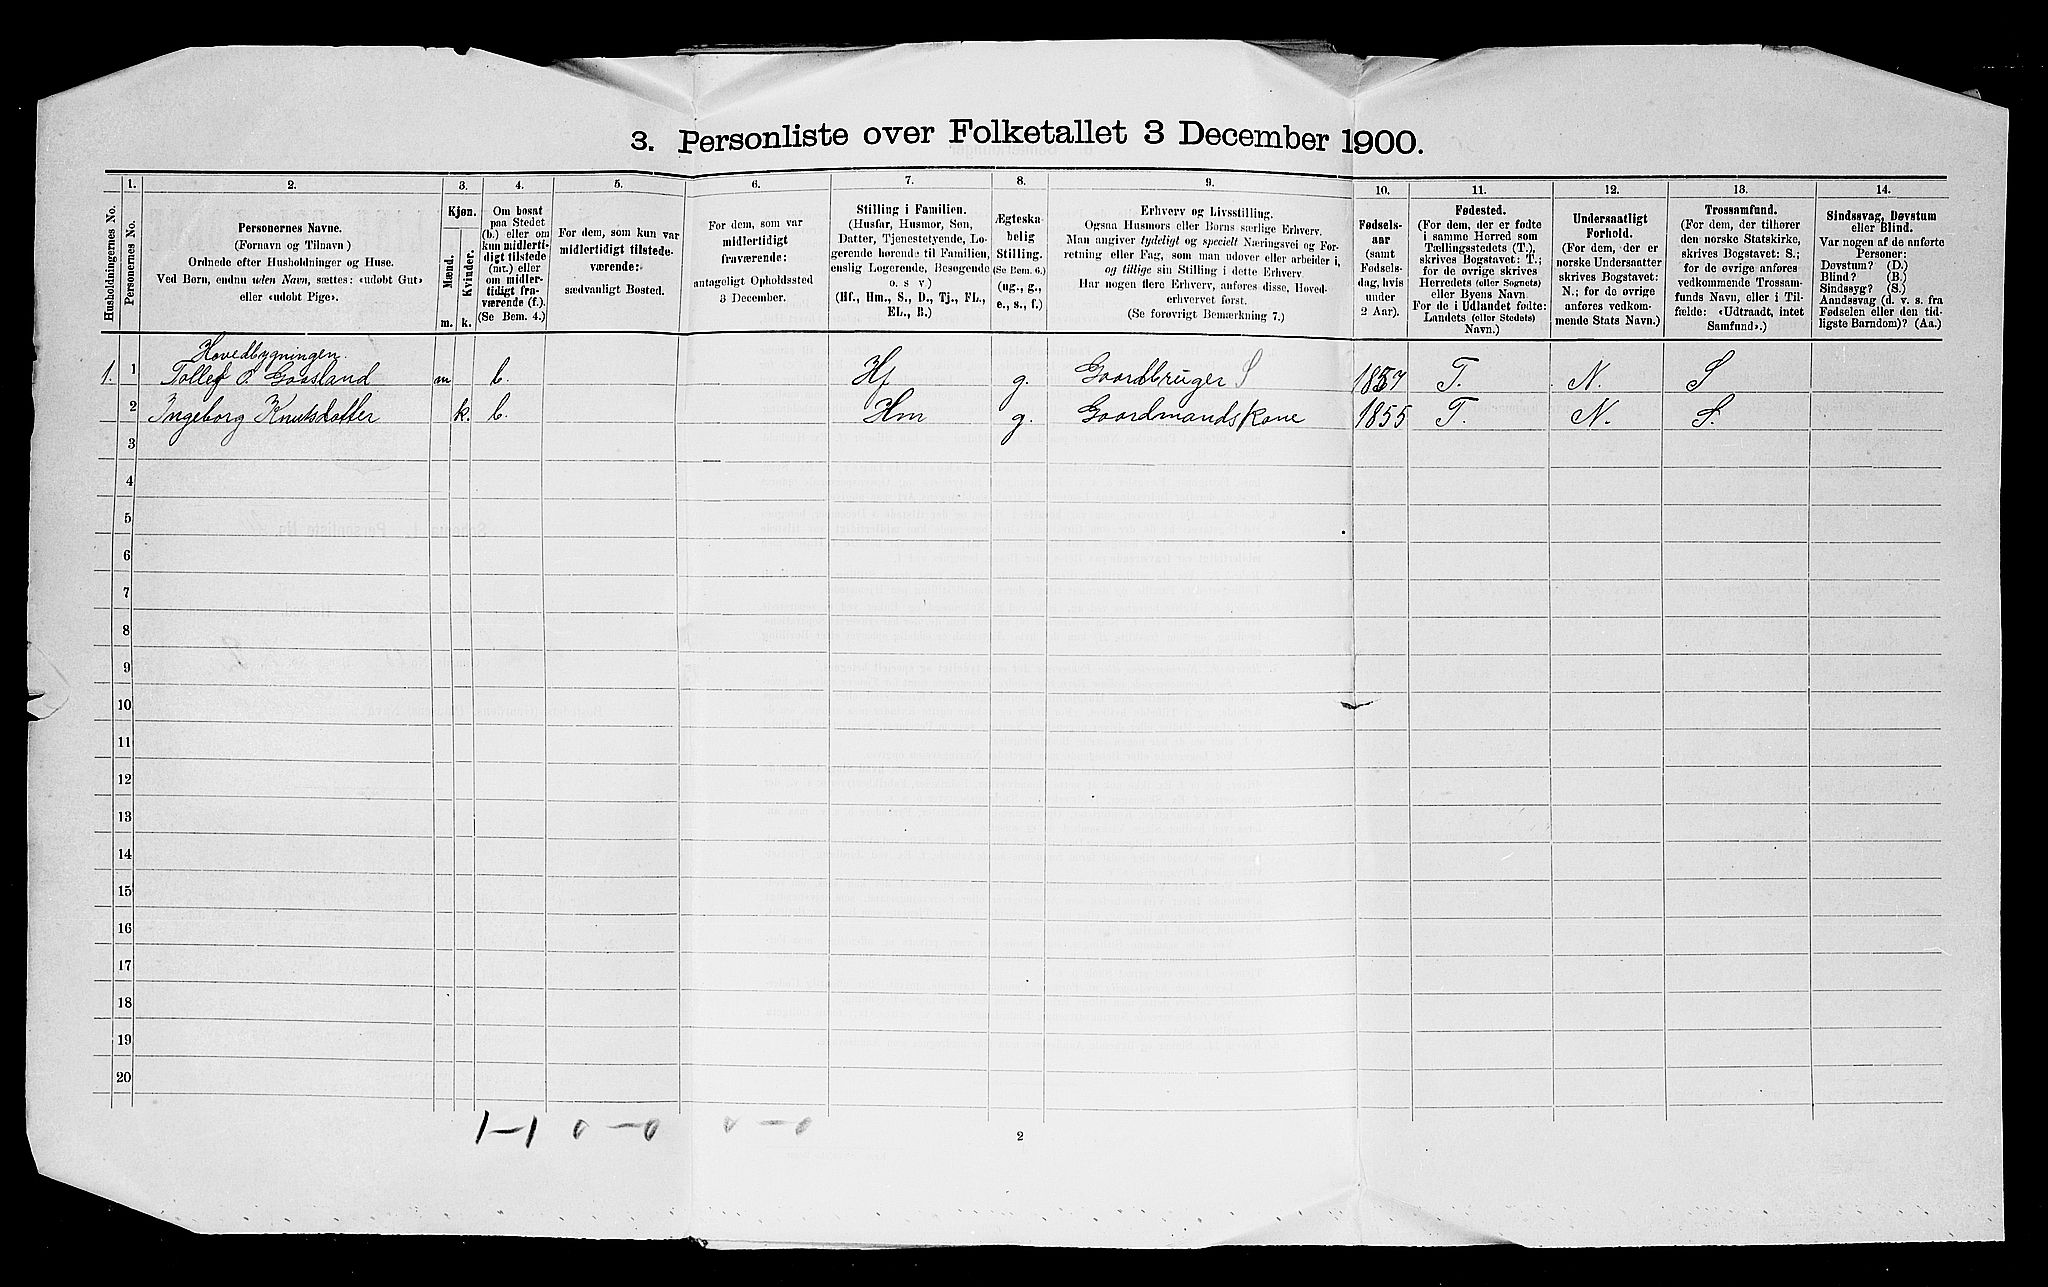 3. Personliste over Folketallet 3 December 1900.
Husholdningernes No.
1.
Personernes No.
2.
Personernes Navne.
(Fornavn og Tilnavn)
Ordnede efter Husholdninger og Huse.
Ved Børn, endnu uden Navn, sættes: «udøbt Gut»
eller «udøbt Pige».
3.
Kjøn.
Mænd.
Kvinder.
m. k.
4.
Om bosat
paa Stedet
(b.) eller om
kun midlerti-
digt tilstede
(mt.) eller
om midler-
tidigt fra-
værende (f.).
(Se Bem. 4.)
5.
For dem, som kun var
midlertidigt tilstede-
værende:
sædvanligt Bosted.
6.
For dem, som var
midlertidigt
fraværende:
antageligt Opholdssted
3 December.
7.
Stilling i Familien.
(Husfar, Husmor, Søn,
Datter, Tjenestetyende, Lo-
gerende hørende til Familien,
enslig Logerende, Besøgende
o. s v)
(Hf., Hm., S., D., Tj., FL.,
EL., B.)
8.
Ægteska-
belig
Stilling.
(Se Bem. 6.)
(ug., g.,
e., s., f.)
9.
Erhverv og Livsstilling.
Ogsaa Husmors eller Børns særlige Erhverv.
Man angiver tydeligt og specielt Næringsvei og For-
retning eller Fag, som man udøver eller arbeider i,
og tillige sin Stilling i dette Erhverv.
Har nogen flere Erhverv, anføres disse, Hoved-
erhvervet først.
(Se forøvrigt Bemærkning 7.)
10.
Fødsels-
aar
(samt
Fødsels-
dag, hvis
under
2 Aar).
11.
Fødested.
(For dem, der er fødte
i samme Herred som
Tællingsstedets (T.),
skrives Bogstavet: T.;
for de øvrige skrives
Herredets (eller Sognets)
eller Byens Navn.
For de i Udlandet fødte:
Landets (eller Stedets)
Navn.)
12.
Undersaatligt
Forhold.
(For dem, der er
norske Undersaatter
skrives Bogstavet:
N.; for de øvrige
anføres vedkom-
mende Stats Navn.)
13.
Trossamfund.
(For dem, der tilhører
den norske Statskirke,
skrives Bogstavet: S.;
for de øvrige anføres
vedkommende Trossam-
funds Navn, eller i Til-
fælde: «Udtraadt, intet
Samfund».)
14.
Sindssvag, Døvstum
eller Blind.
Var nogen af de anførte
Personer:
Døvstum? (D.)
Blind? (B.)
Sindssyg? (S.)
Aandssvag (d. v. s. fra
Fødselen eller den tid-
ligste Barndom)? (Aa.)
Hovedbygningen.
1. 1 Tollef O. Gaasland m b. Hf g. Gaardbruger S 1857 T. N. S
2 Ingeborg Knutsdatter k. b. Hm g. Gaardmandskone 1855 T. N. S.
3
4
5
6
7
8
9
10
11
12
13
14
15
16
17
18
19
20
1–1 0–0 0–0
2